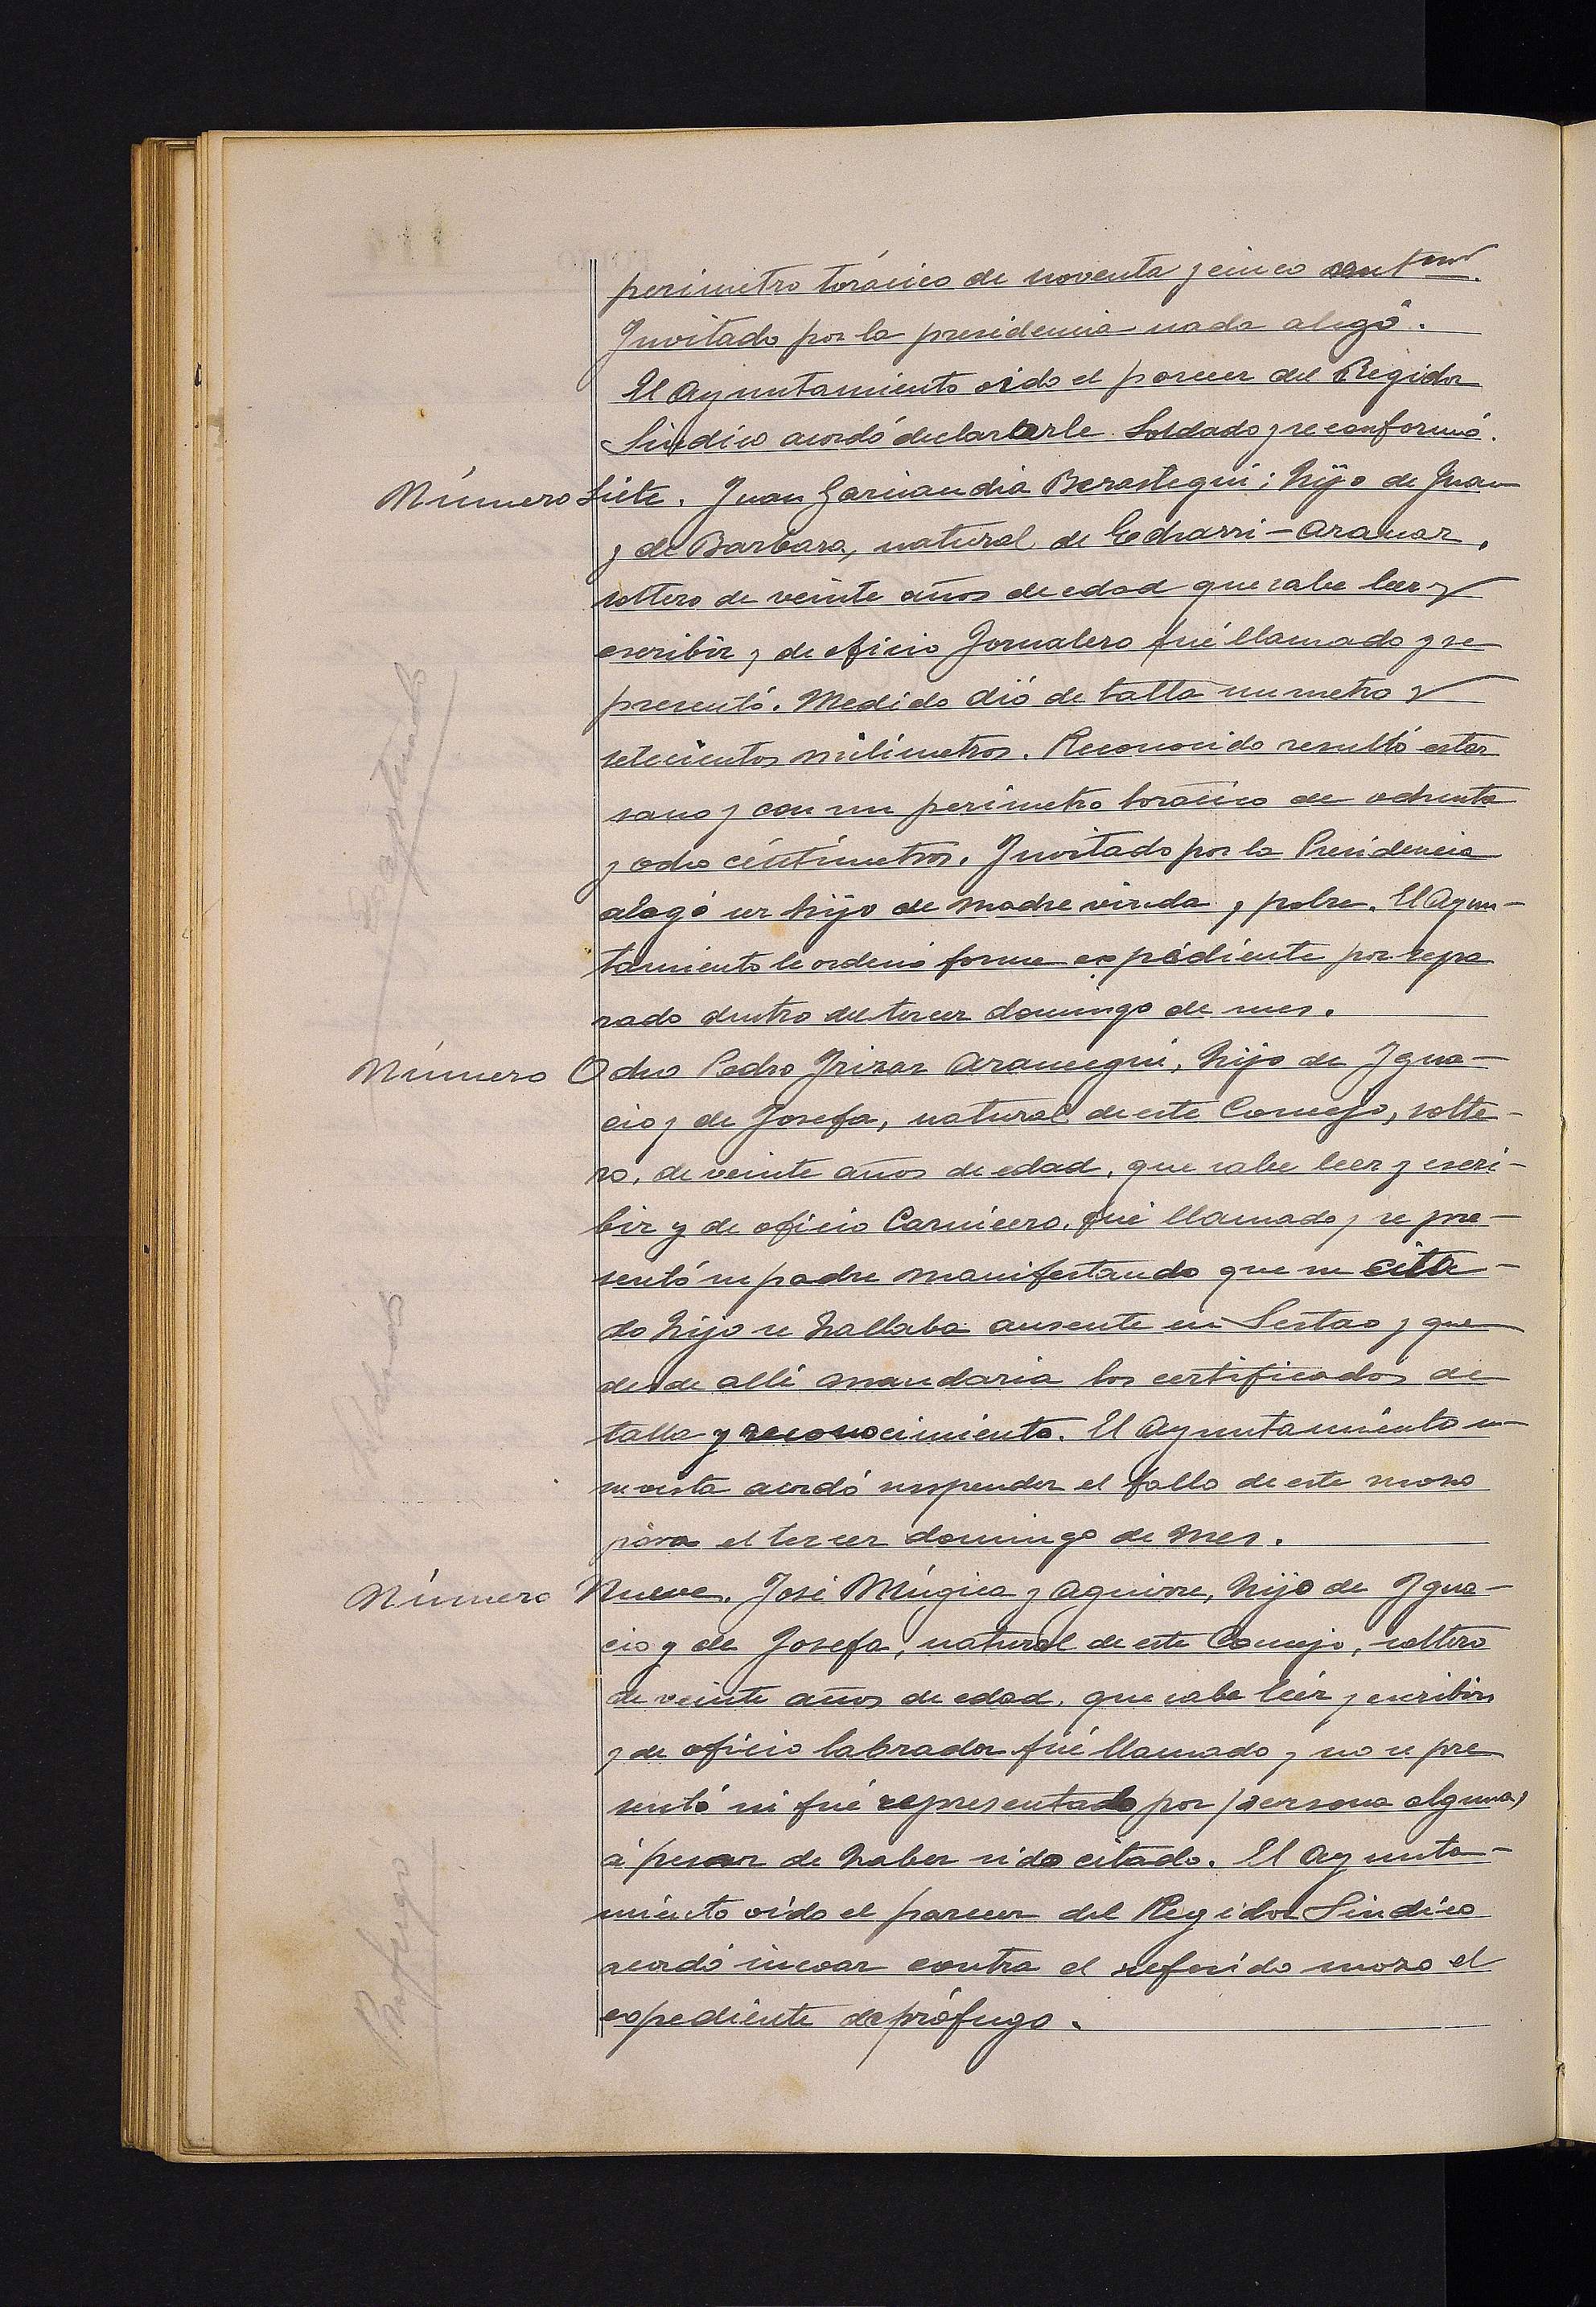 perimetro torácico de noventa y cinco centms.
Invitado por la presidencia nada alegó.
El Ayuntamiento oido el parecer del Regidor
Sindico acordó declararle Soldado y se conformó.
Número Siete. Juan Garciandia Berastegui; hijo de Juan
y de Barbara, natural de Echarri-Aranaz,
soltero de veinte años de edad que sabe leer y
escribir y de oficio Jornalero fué llamado y se
presentó. Medido dió de talla un metro y
setecientos milímetros. Reconocido resultó estar
sano y con un perímetro torácico de ochenta
y ocho céntimetros. Invitado por la Presidencia
alegó ser hijo de madre viuda y pobre. El Ayun-
tamiento le ordenó forme expediente por sepa
rado dentro del tercer domingo de mes.
Número Ocho Pedro Irizar Aramegui, hijo de Igna-
cio y de Josefa, natural de este Concejo, solte-
ro, de veinte años de edad, que sabe leer y escri-
bir y de oficio Carnicero, fué llamado y se pre-
sentó su padre manifestando que su cita-
do hijo se hallaba ausente en Sestao y que
desde allí mandaria los certificados de
talla y reconocimiento. El Ayuntamiento en
su vista acordó suspender el fallo de este mozo
para el tercer domingo de mes.
Número Nueve. José Múgica y Aguirre, hijo de Igna-
cio y de Josefa, natural de este Concejo, soltero
de veinte años de edad, que sabe leér y escribir
y de oficio labrador fué llamado y no se pre
sentó ni fué representado por persona alguna,
á pesar de haber sido citado. El Ayunta-
miento oído el parecer del Regidor Sindico
acordó incoar contra el referido mozo el
expediente de prófugo.
Exceptuado
Soldado
Prófugo